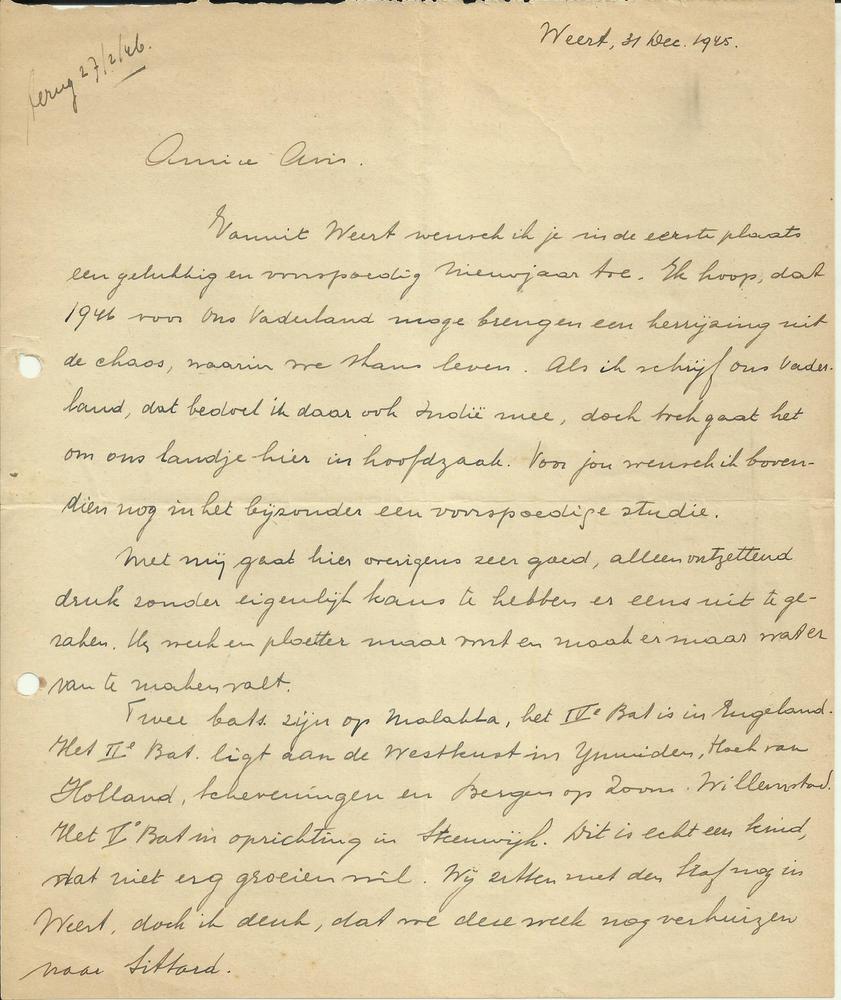 Weert, 31 Dec. 1945.
terug 27/2/46.
Amice Avis.
Vanuit Weert wensch ik je in de eerste plaats
een gelukkig en voorspoedig Nieuwjaar toe. Ik hoop, dat
1946 voor Ons Vaderland moge brengen een herrijzing uit
de chaos, waarin we thans leven. Als ik schrijf ons Vader-
land, dat bedoel ik daar ook Indië mee, doch toch gaat het
om ons landje hier in hoofdzaak. Voor jou wensch ik boven-
dien nog in het bijzonder een voorspoedige studie.
Met mij gaat hier overigens zeer goed, alleen ontzettend
druk zonder eigenlijk kans te hebben er eens uit te ge-
raken. Wij werk en ploetter maar voort en maak er maar wat er
van te maken valt.
Twee bats. zijn op Malakka, het IVe Bat is in Engeland.
Het IIe Bat. ligt aan de Westkust in Ymuiden, Hoek van
Holland, Scheveningen en Bergen op Zoom. Willemstad.
Het Ve Bat in oprichting in Steenwijk. Dit is echt een kind,
dat niet erg groeien wil. Wij zitten met den Staf nog in
Weert, doch ik denk, dat we deze week nog verhuizen
naar Sittard.